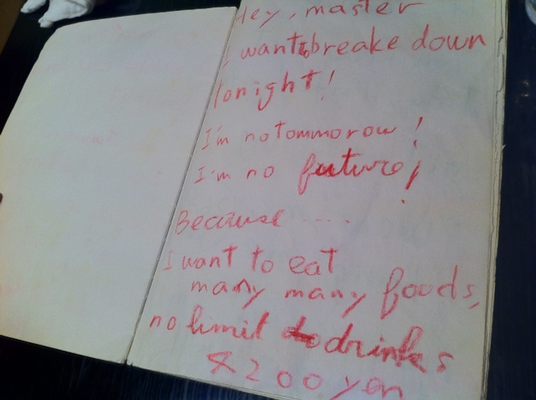 Hey, master
I want to breake down
tonight!
I'm no tommorow!
I'm no future!
Because ....
I want to eat
many many foods,
no limit to drinks
4200 yen